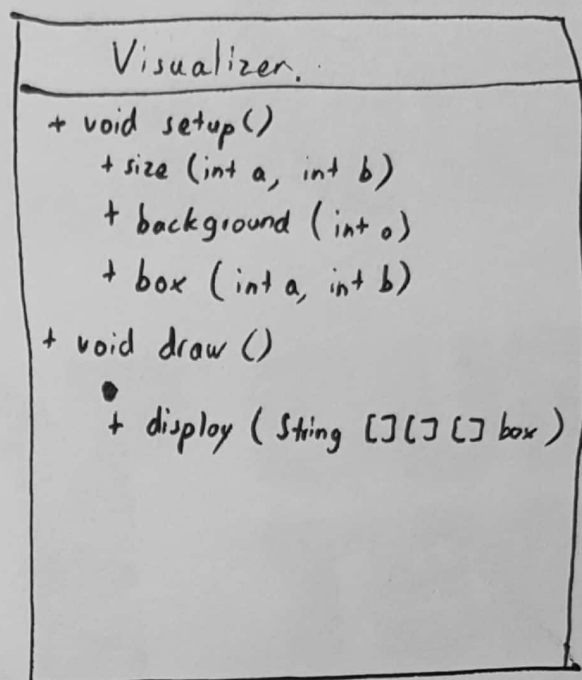 Visualizer.
+ void setup()
+ size (int a, int b)
+ background (int o)
+ box (int a, int b)
+ void draw ()
+ display (String [][][] box)